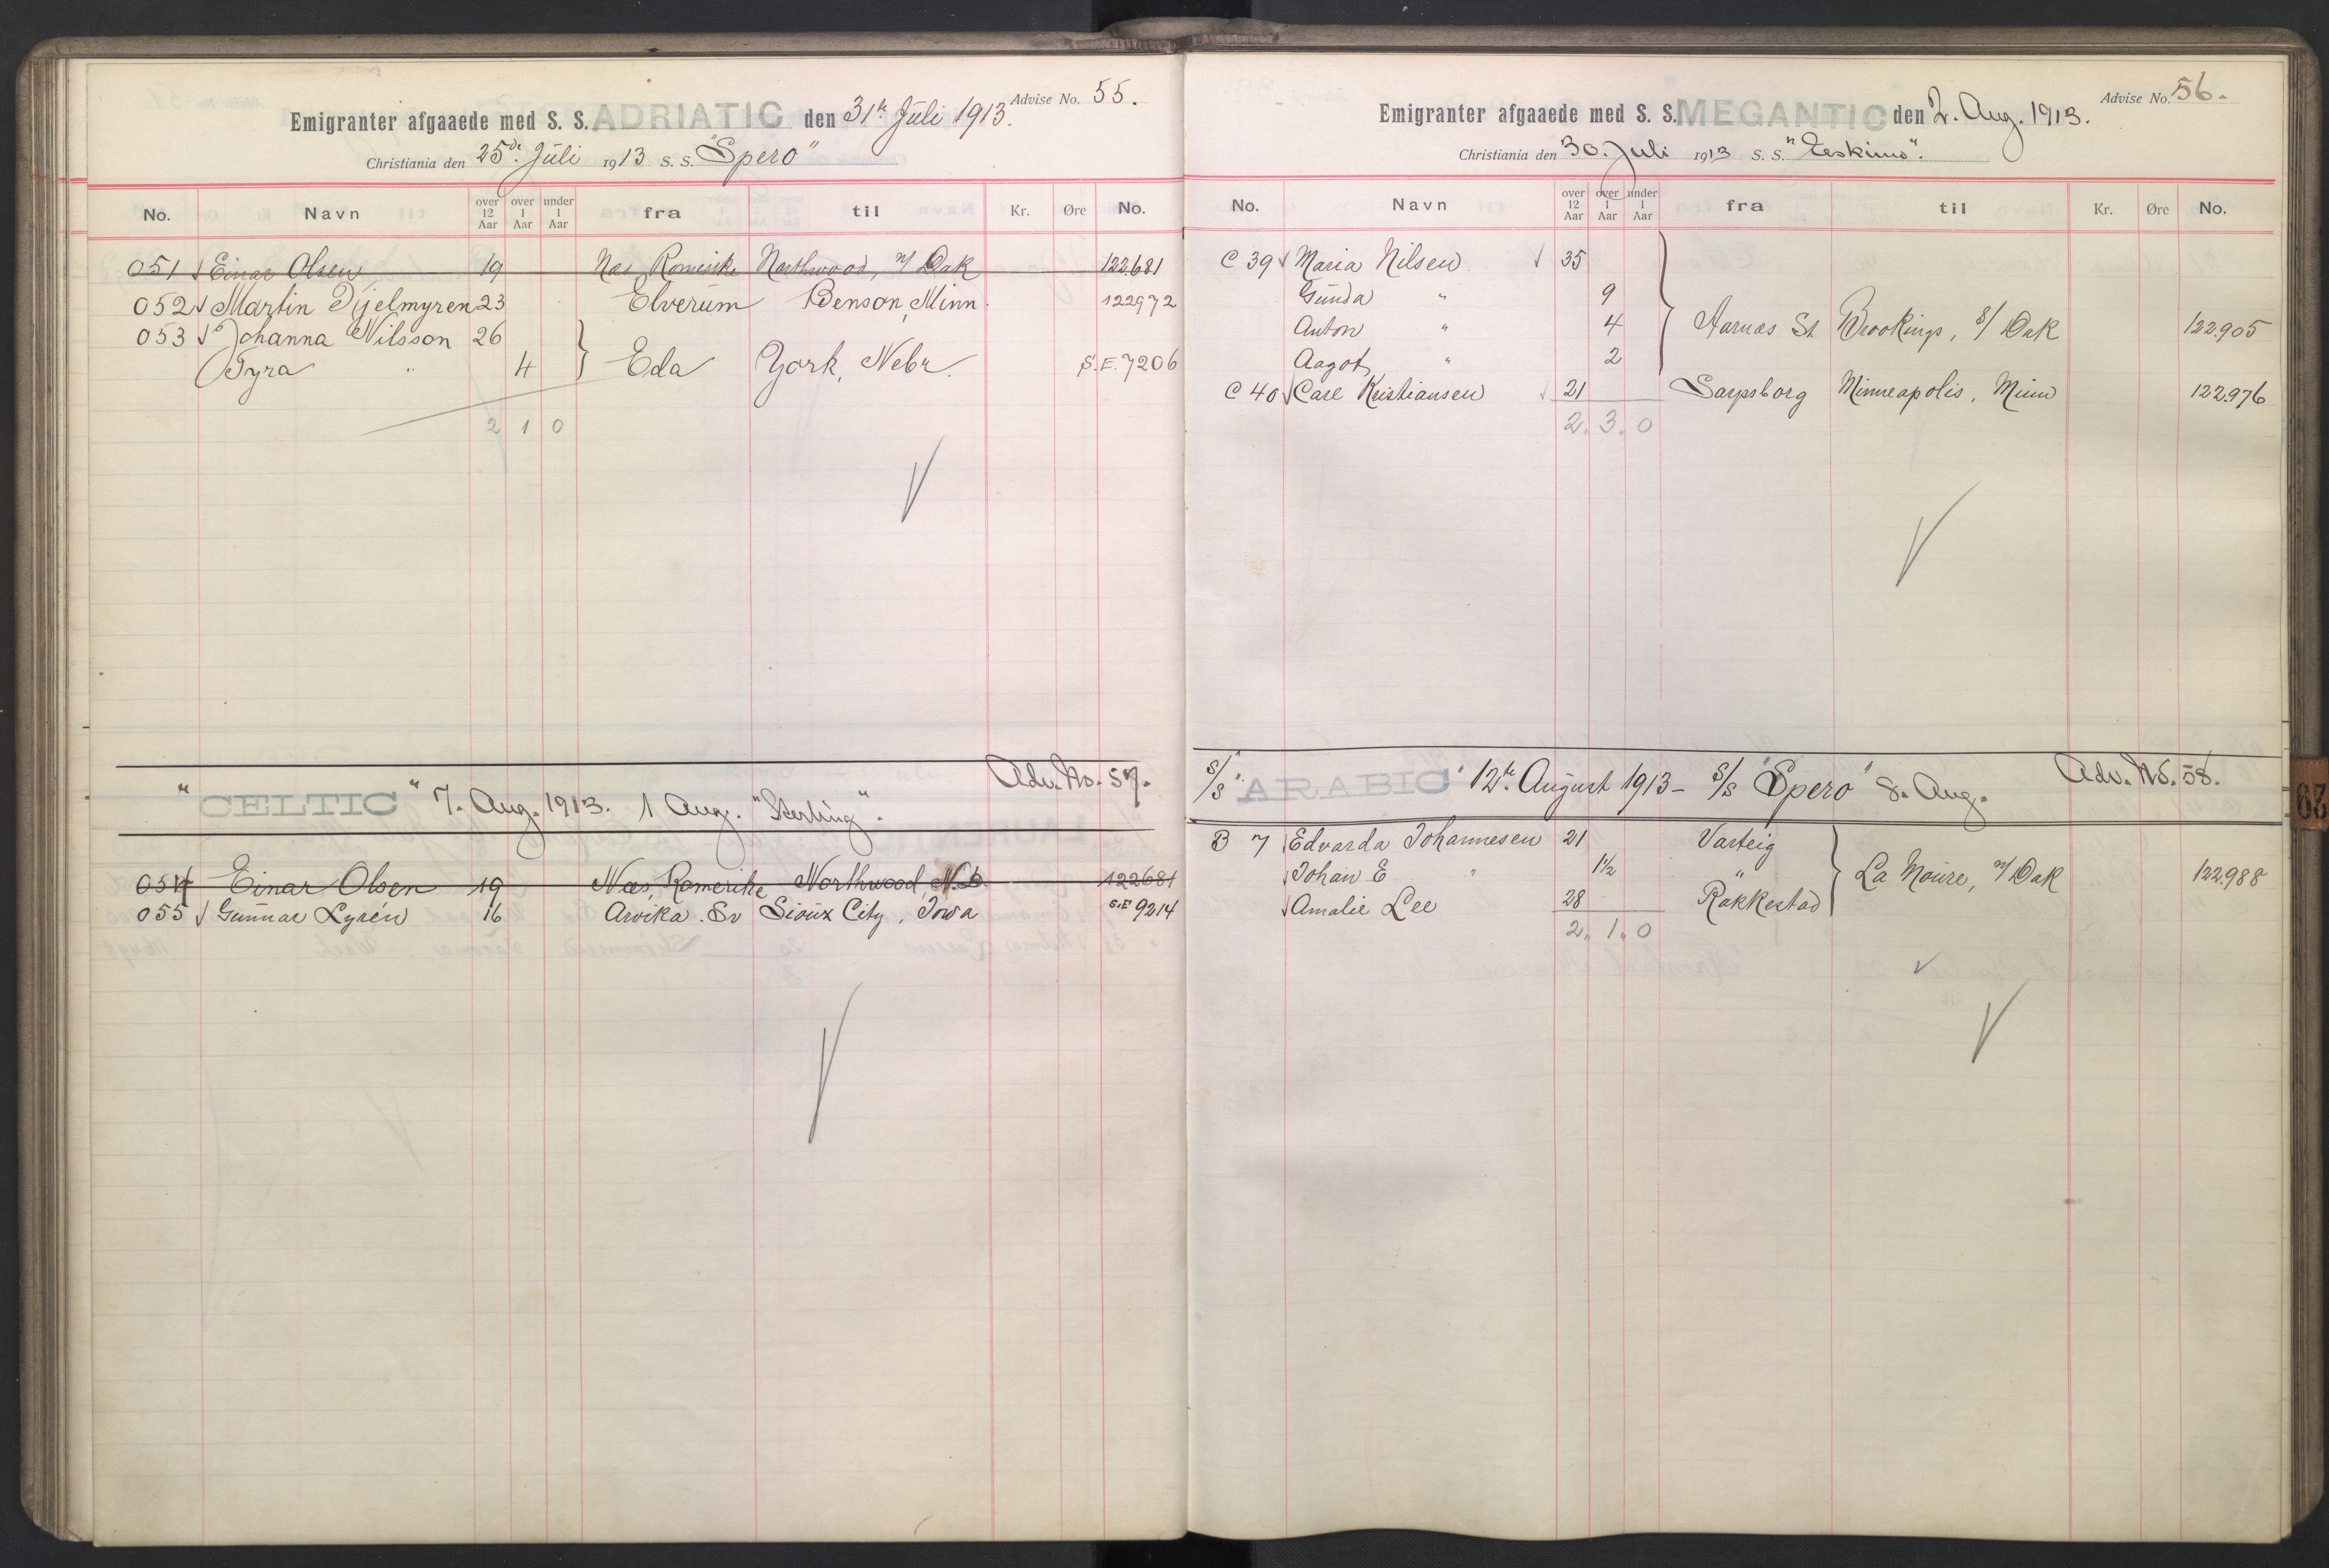 Advise No. 55.
Emigranter afgaaede med S. S. ADRIATIC den 31te Juli 1913.
Christiania den 25de Juli 1913 S. S. "Spero"
No. Navn over 12 Aar over 1 Aar under 1 Aar fra til Kr. Øre No.
051 Einar Olsen 19 Næs, Romerike Northwood, N/ Dak 122.681
052 Martin Djelmyren 23 Elverum Benson, Minn. 122972
053 Johanna Nilsson 26
Tyra " 4 Eda York, Nebr. S.E. 7206
2 1 0
Adv. No. 57.
" CELTIC " 7. Aug. 1913. 1 Aug. "Sterling".
054 Einar Olsen 19 Næs, Romerike Northwood, N.D. 122681
055 Gunnar Lyrén 16 Arvika. Sv Sioux City, Iowa S.E 9214
Advise No. 56.
Emigranter afgaaede med S. S. MEGANTIC den 2. Aug. 1913.
Christiania den 30. Juli 1913 S. S. "Eskimo".
No. Navn over 12 Aar over 1 Aar under 1 Aar fra til Kr. Øre No.
C 39 Maria Nilsen 35
Gunda " 9
Anton " 4 Aarnæs St Brookings, S/ Dak 122.905
Aagot " 2
C 40 Carl Kristiansen 21 Sarpsborg Minneapolis, Minn 122.976
2. 3. 0
S/S "ARABIC" 12te August 1913 - S/S "Spero" 8. Aug. Adv. No. 58.
B 7 Edvarda Johannesen 21 Varteig
Johan E " 1½ " La Moure, N/ Dak 122.988
Amalie Lee 28 Rakkestad
2. 1. 0